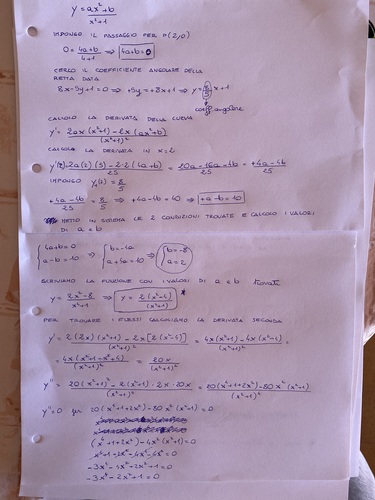 y = ax²+b / x²+1
IMPONGO IL PASSAGGIO PER P(2,0)
0 = 4a+b / 4+1 ⇒ 4a+b=0
CERCO IL COEFFICIENTE ANGOLARE DELLA
RETTA DATA
8x-5y+1=0 ⇒ +5y=+8x+1 ⇒ y= 8/5 x+1
coeff. angolare
CALCOLO LA DERIVATA DELLA CURVA
y' = 2ax(x²+1) - 2x(ax²+b) / (x²+1)²
CALCOLO LA DERIVATA IN x=2
y'(2) = 2a(2)(5) - 2·2(4a+b) / 25 = 20a-16a-4b / 25 = +4a-4b / 25
IMPONGO y'(2) = 8/5
+4a-4b / 25 = 8/5 ⇒ +4a-4b=40 ⇒ +a-b=10
METTO IN SISTEMA LE 2 CONDIZIONI TROVATE E CALCOLO I VALORI
DI a e b
{4a+b=0 a-b=10 ⇒ {b=-4a a+4a=10 ⇒ {b=-8 a=2
SCRIVIAMO LA FUNZIONE CON I VALORI DI a e b trovati
y = 2x²-8 / x²+1 ⇒ y = 2(x²-4) / (x²+1) *
PER TROVARE I FLESSI CALCOLIAMO LA DERIVATA SECONDA
y' = 2(2x)(x²+1) - 2x[2(x²-4)] / (x²+1)² = 4x(x²+1) - 4x(x²-4) / (x²+1)² =
= 4x(x²+1-x²+4) / (x²+1)² = 20x / (x²+1)²
y'' = 20(x²+1)² - 2(x²+1)·2x·20x / (x²+1)⁴ = 20(x⁴+1+2x²) - 80x²(x²+1) / (x²+1)⁴
y''=0 per 20(x⁴+1+2x²) - 80x²(x²+1) = 0
(x⁴+1+2x²) - 4x²(x²+1) = 0
x⁴+1+2x²-4x⁴-4x²=0
-3x⁴-4x²+2x²+1=0
-3x⁴-2x²+1=0